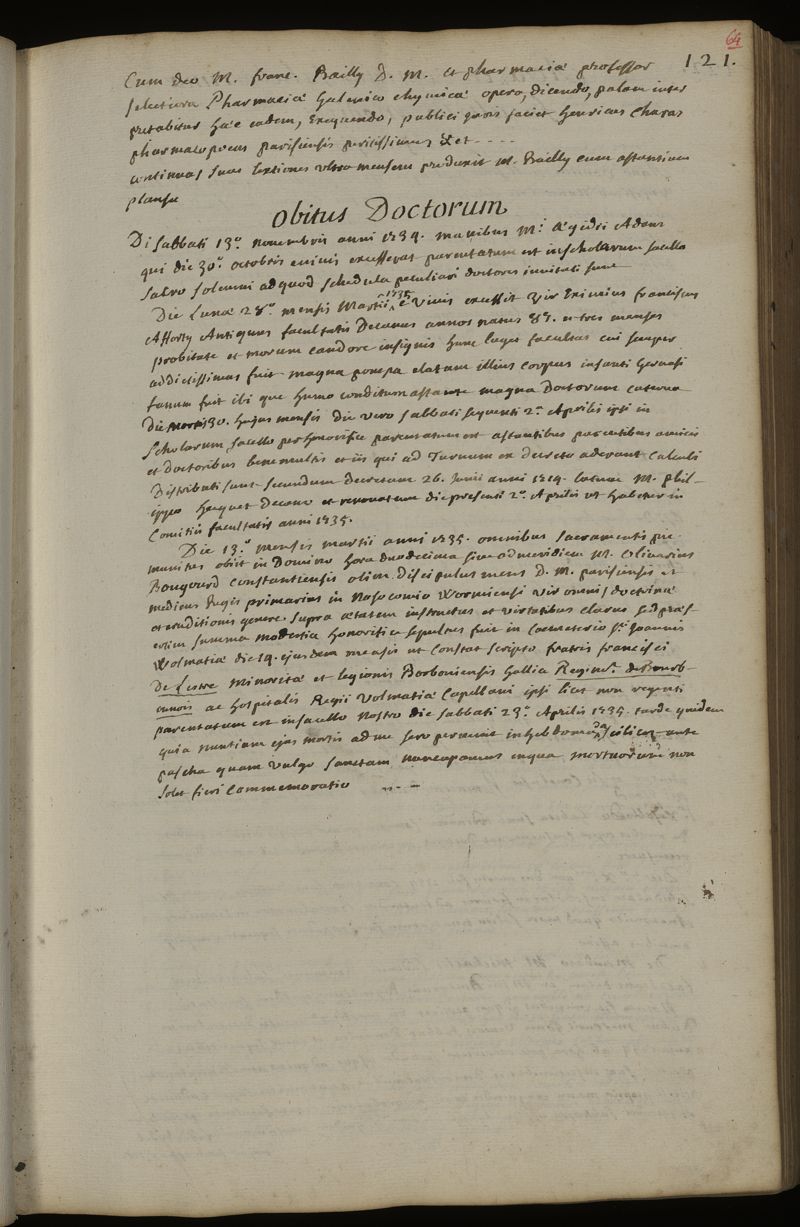 64
121.
Cum deo M. franc. Bailly D. M. et pharmaciæ professor
selectiora Pharmaciæ Galenico chymicæ opera, dicendo, palam inter
pretabitur hæc eadem, Exequendo, publici juris faciet henricus Charas
pharmacopoeus parisiensis peritissimus &et - - - -
continuas suas lectiones ultra mensem produxit M. Bailly cum astantium
plausu
obitus Doctorum
Di sabbati 13.ª novembris anni 1734. manibus M.i ægidii Adans
qui die 30.ª octobris e vivis excesserat parentatum est in scholarum sacello
sacro solemni ad quod schedula peculiari doctores invitati sunt
Die Lunæ 28.ª mensis Martii 1735 e vivis excessit vir Eximius franciscus
Afforty Antiquus facultatis Decanus annos natus 87. et tres menses
probitate et morum candore insignis hunc luget facultas cui semper
addictissimus fuit magna pompa elatum illius corpus in sancti Gervasi
fanum fuit ibi que humo conditum astante magna Doctorum caterva
Die 30. hujus mensis die vero sabbati sequenti 2.ª Aprilis ipsi in
Scholarum sacello perhonorifice parentatum est astantibus parentibus amicis
et doctoribus benemultis et iis qui ad Turnum ex decreto aderant Calculi
Distributi sunt secundum decretum 26. Junii anni 1714. latum M. phil-
ippo hecquet Decano et renovatum die presenti 2.ª Aprilis ut habetur in
Comitiis facultatis anni 1735.
Die 13.ª mensis martii anni 1735. omnibus sacramentis præ
munitus obiit in Domino hora duodecima sive ad meridiem M. Olivarius
Bougourd Constantiensis olim discipulus meus D. M. parisiensis et
medicus Regis primarius in Nosocomio Wormiensi vir omnis doctrinæ
et eruditionis genere supra ætatem instructus et virtutibus clarus sed præs-
ertim summa modestia honorifice sepultus fuit in Coemeterio s.ti Joannis
Wolmatiæ die 14. ejusdem mensis ut constat scripto fratris francisci
De Lestre Minoritæ et legionis Borboniensis Gallicæ Regim.t de Bourb-
onnois ac hospitalis Regii Volmatiæ Capellani ipsi licet non regenti
parentatum est in sacello nostro die sabbati 23.ª Aprilis 1735. tarde quidem
quia nuntium ejus mortis ad me sero pervenit in hebdomada scilicet ante
pascha quam vulgo sanctam nuncupamus in qua mortuorum non
solet fieri Commemoratio - - -